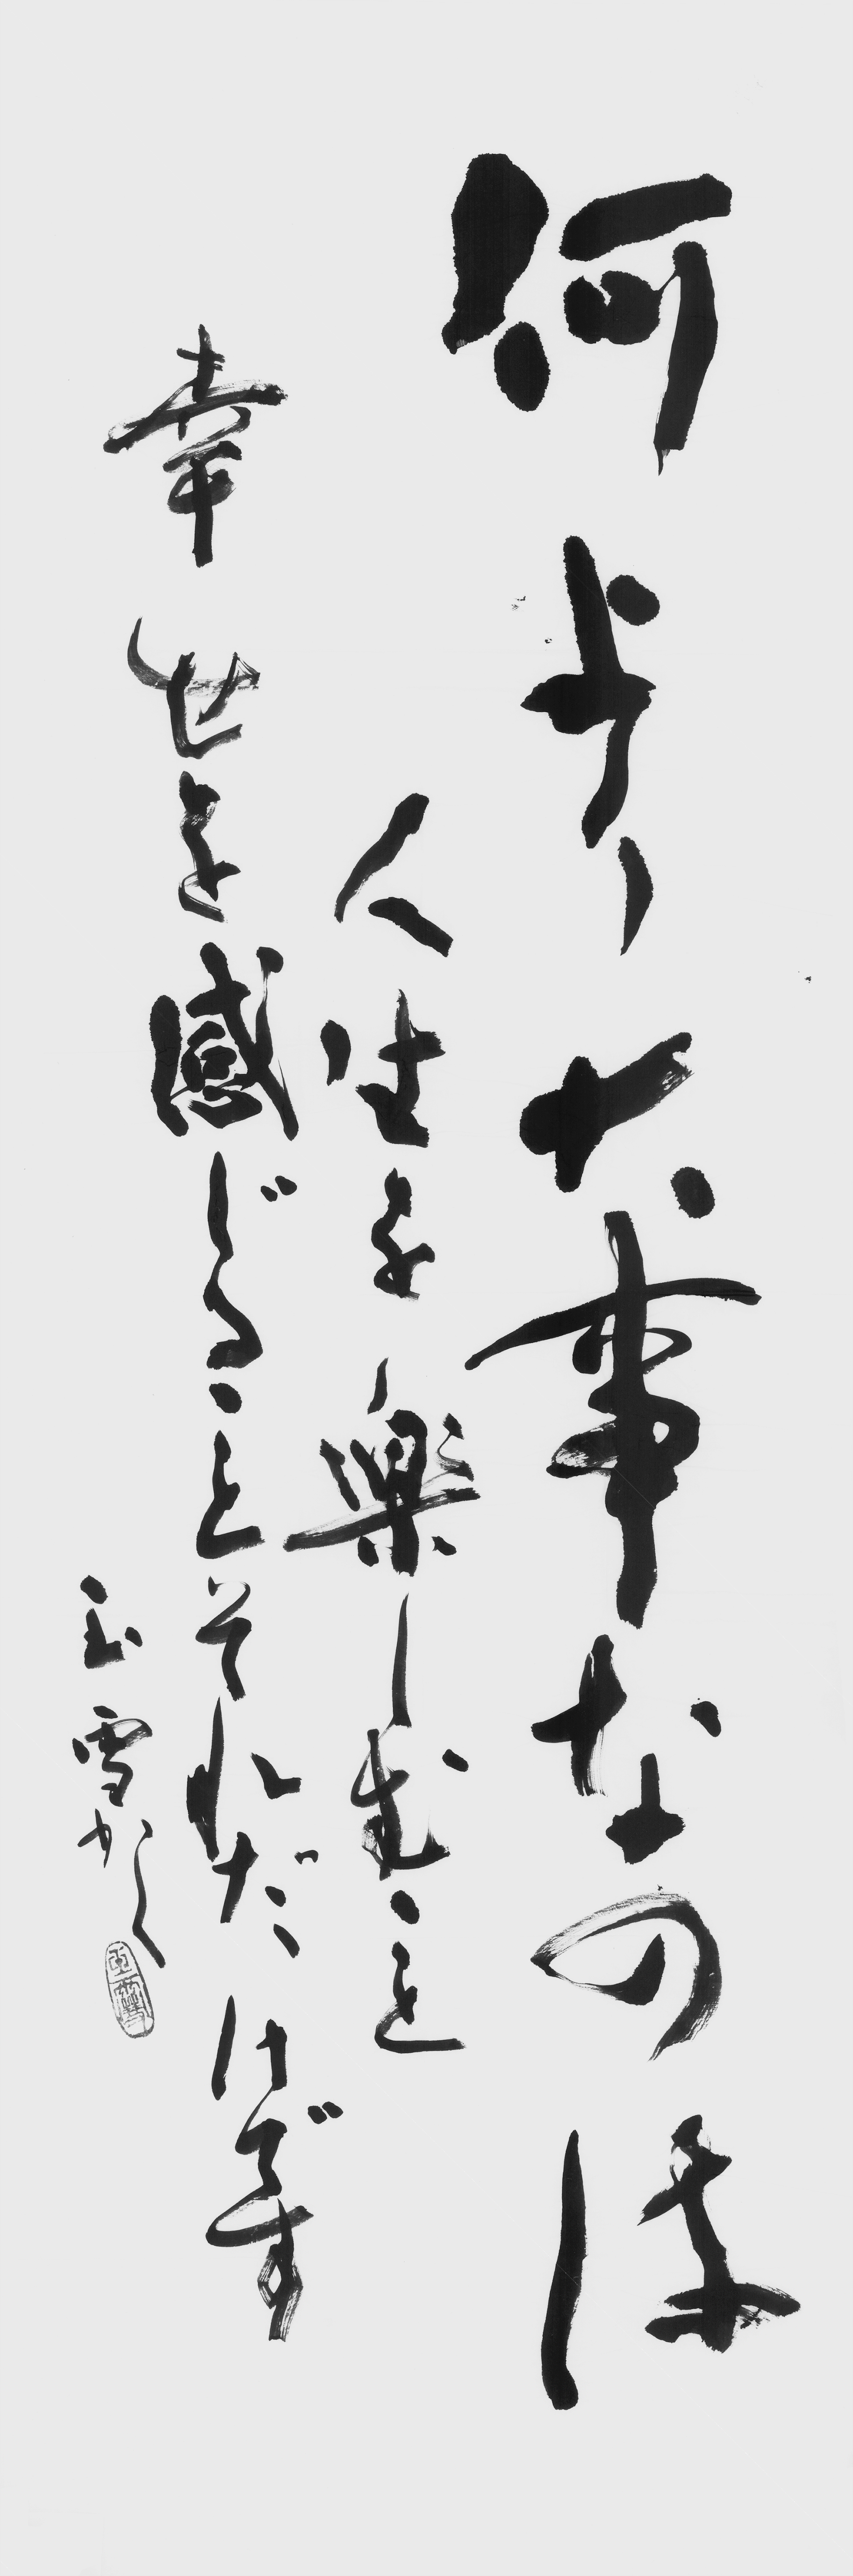 何より大事なのは
人生を楽しむこと
幸せを感じることそれだけです
玉雪かく